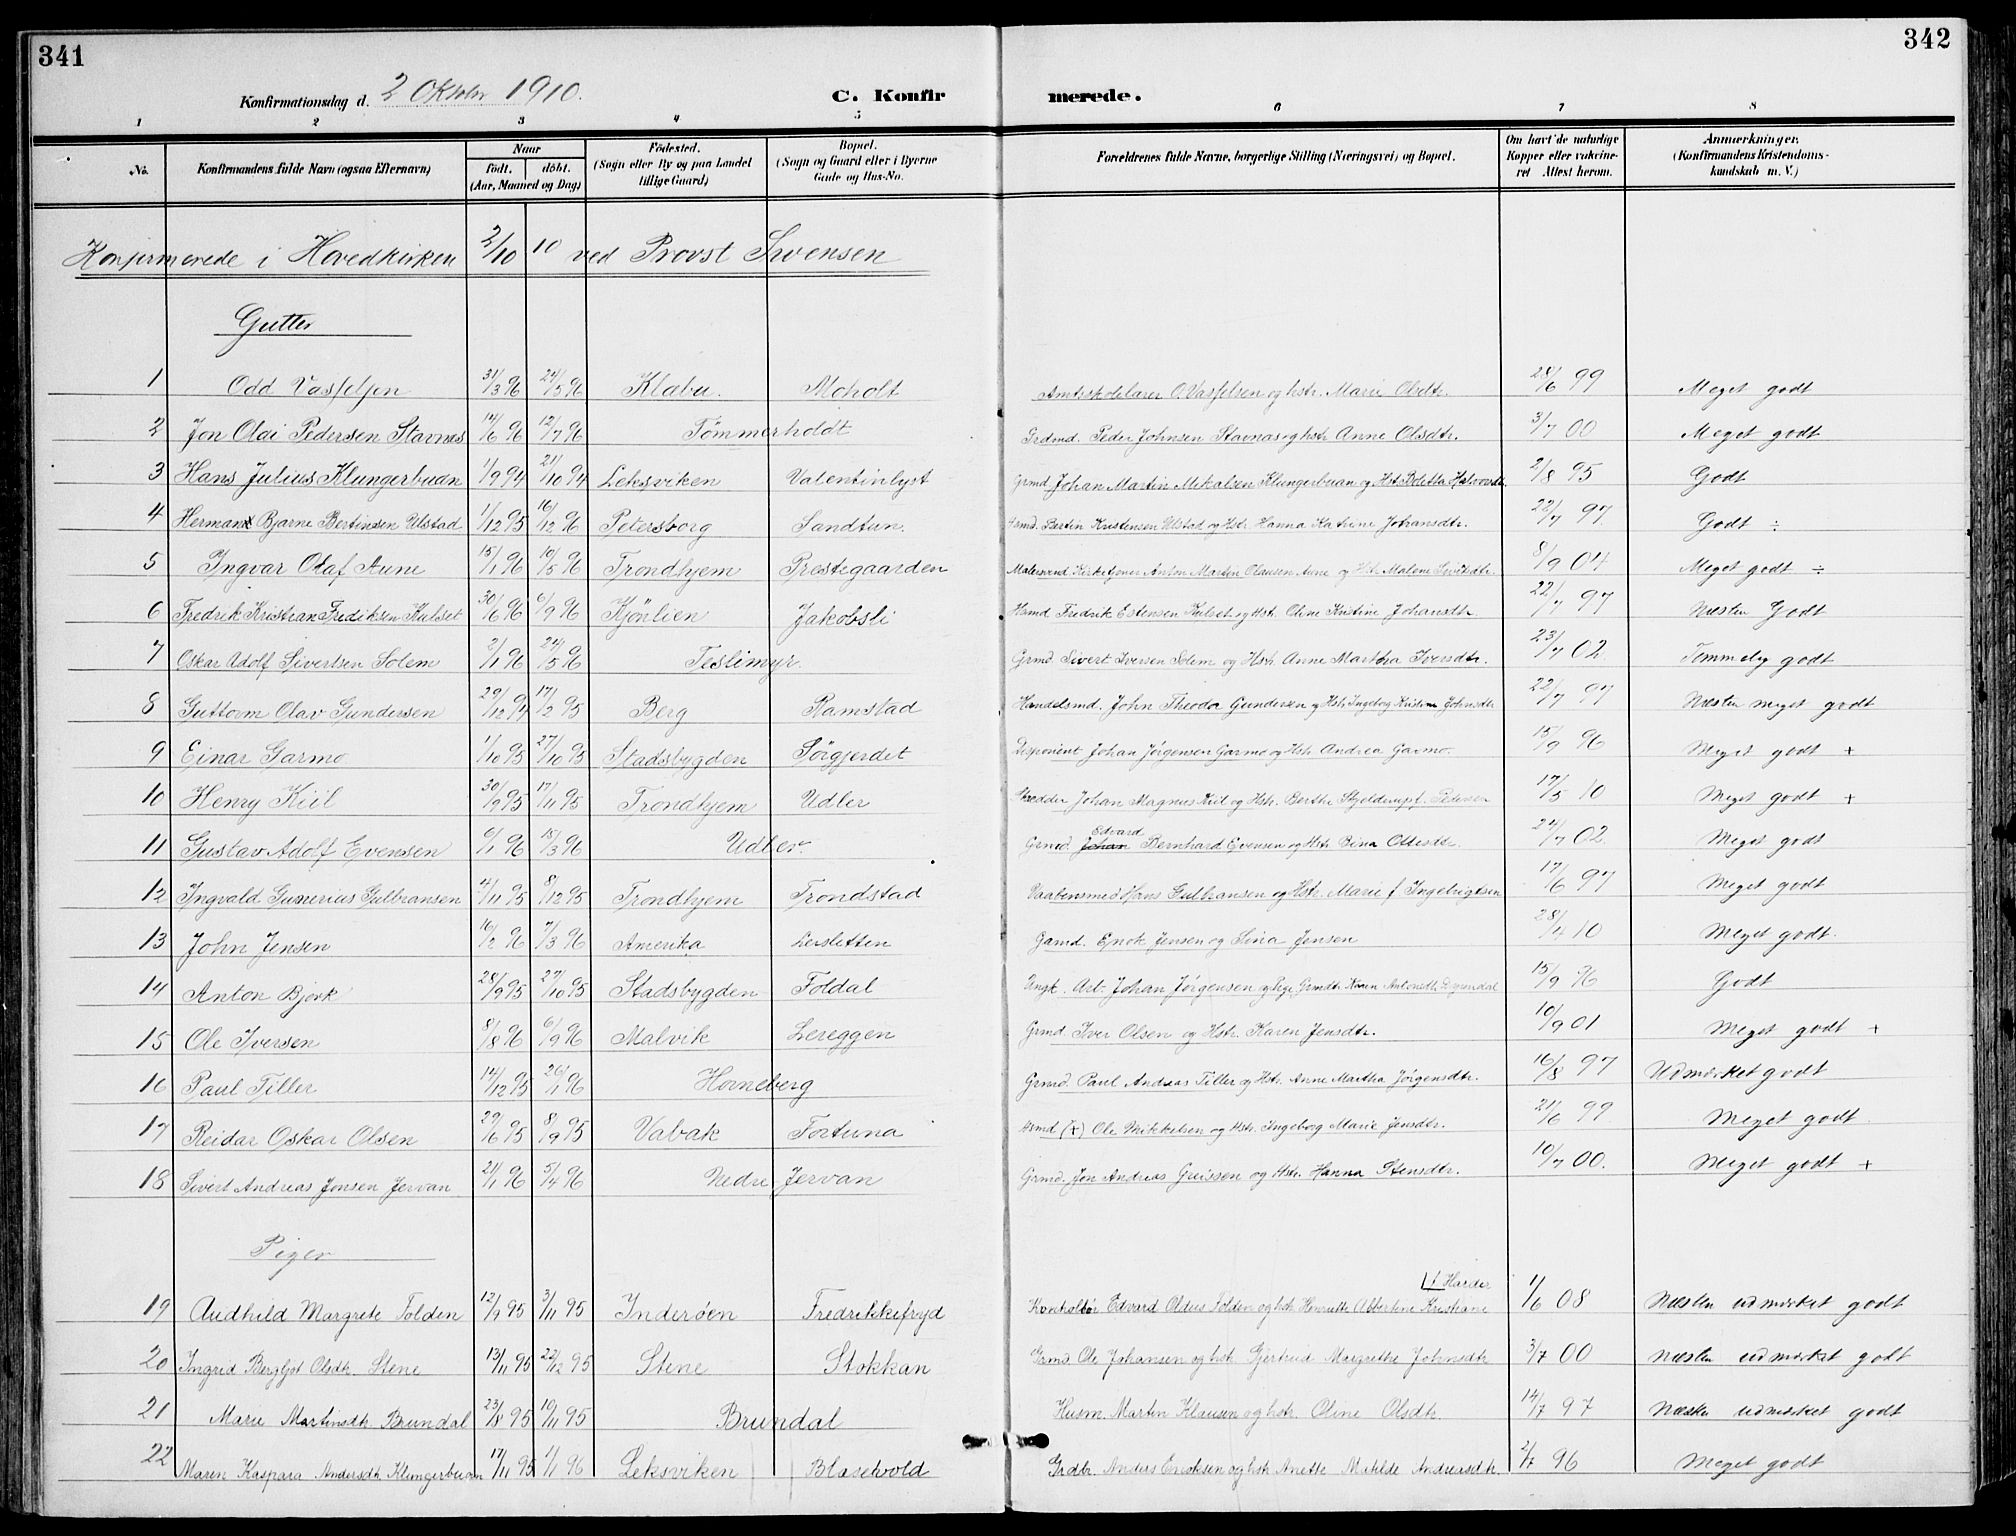 341
342
Konfirmationsdag d. 2 Oktober 1910.
C. Konfir merede.
1 2 3 4 5 6 7 8
No.
Konfirmandens fulde Navn (ogsaa Efternavn)
Naar
født. døbt.
(Aar, Maaned og Dag)
Fødested.
(Sogn eller By og paa Landet
tillige Gaard)
Bopæl.
(Sogn og Gaard eller i Byerne
Gade og Hus-No.
Forældrenes fulde Navne, borgerlige Stilling (Næringsvei) og Bopæl.
Om havt de naturlige
Kopper eller vakcine-
ret Attest herom.
Anmærkninger.
(Konfirmandens Kristendoms-
kundskab m. V.)
Konfirmerede i Hovedkirken 2/10 10 ved Provst Svensen
Gutter
1 Odd Vasseljen 31/3 96 24/5 96 Klæbu. Moholt Amtskolelærer O. Vasselsen og hstr. Marie Olsdtr. 28/6 99 Meget godt
2 Jon Olai Pedersen Stavnes 14/6 96 12/7 96 Tömmerholdt Grdmd. Peder Johnsen Stavnas og hstr Anne Olsdtr. 3/7 00 Meget godt
3 Hans Julius Klungerbuan 1/9 94 21/10 94 Leksviken Valentinlyst Grmd. Johan Martin Mikalsen Klungerbuan og Hst. 2/8 95 Godt
4 Herman Bjarne Bertinsen Ulstad 1/12 95 16/12 96 Petersborg Sandtun. Bertin Kristensen Ulstad og Hstr. Hanna Katrine Johansdtr. 22/7 97. Godt ÷
5 Ingvar Olaf Aune 15/1 96 10/5 96 Trondhjem Prestegaarden Malersvend Kirketjener Anton Martin Olausen Aune og Hst. Malene 8/9 04 Meget godt ÷
6 Fredrik Kristian Frediksen Kulset 30/6 96 6/9 96 Kjönlien Jakobsli Hsmd Fredrik Estensen Kulset og Hstr. Oline Kristine Johansdtr 22/7 97 Næsten Godt
7 Oskar Adolf Sivertsen Solem 2/1 96 24/5 96 Teslimyr. Grmd. Sivert Iversen Solem og Hstr. Anne Martha Iversdtr. 23/7 02 Temmelig godt
8 Guttorm Olav Gundersen 29/12 94 17/2 95 Berg Ramstad Handelsmd. John Theodor Gundersen og Hstr. Ingeborg Kristine Johnsdtr 22/7 97 Næsten meget godt
9 Einar Garmo 1/10 95 27/10 95 Stadsbygden Sörgjerdet Disponent Johan Jørgensen Garmo og Hstr. Andrea Garmo. 15/9 96 Meget godt +
10 Henry Kiil 30/9 95 17/11 95 Trondhjem Udler Skrædder Johan Magnus Kiil og Hstr. Berthe Skjelderup f. Pedersen 17/5 10 Meget godt +
11 Gustav Adolf Evensen 6/1 96 15/3 96 Udler. Grmd. Johan Edvard Bernhard Evensen og Hstr. Bina Ottesdtr. 24/7 02 Meget godt
12 Ingvald Gunerius Gulbransen 4/11 95 8/12 95 Trondhjem Trondstad Vaabensmed Hans Gulbransen og Hstr. Marie f Ingebrigtsen 17/6 97 Meget godt
13 John Jensen 16/2 96 7/3 96 Amerika Leisletten Gamd. Enok Jensen og Sina Jensen 28/4 10 Meget godt.
14 Anton Bjørk 28/9 95 27/10 95 Stadsbygden Foldal Ungk. Arb. Johan Jørgensen og Pige Grmdtr. Karen Antonsdtr. 15/9 96 Godt
15 Ole Iversen 8/8 96 6/9 96 Malvik Lereggen Grmd Iver Olsen og Hstr. Karen Jensdtr. 10/9 01 Meget godt +
16 Paul Tiller 14/12 95 26/1 96 Horneberg Grmd. Paul Andreas Tiller og Hstr. Anne Martha Jörgensdtr. 16/8 97 Udmærket godt
17 Reidar Oskar Olsen 29/6 95 8/9 95 Vabak Fortuna Hsmd (+) Ole Mikkelsen og Hstr. Ingeborg Marie Jensdtr. 21/6 99 Meget godt
18 Sivert Andreas Jonsen Jervan 21/1 96 5/4 96 Nedre Jervan Grmd. Jon Andreas Griissen og Hstr. Hanna Stensdtr. 10/7 00. Meget godt +
Piger
f. Harder
19 Audhild Margrete Folden 12/9 95 3/11 95 Inderöen Fredrikkefryd Kontrollör Edvard Oldus Folden og hstr Henrette Albertine Kristiane 1/6 08 Næsten udmærket godt
20 Ingrid Bergljot Olsdtr. Stene 13/11 95 22/12 95 Stene Stokkan Grmd. Ole Johansen og hstr. Gjertrud Margrethe Johnsdtr 3/7 00 Næsten udmærket godt
21 Marie Martinsdtr. Brundal 23/8 95 10/11 95 Brundal Husm. Martin Klausen og hstr. Oline Olsdtr. 14/7 97 Næsten udmærket godt
22 Maren Kaspara Andersdtr Klungerbuan 17/11 95 1/1 96 Leksviken Blasevold Grdbr. Anders Eriksen og hstr Anette Matilde Andreasdtr. 2/7 96 Meget godt